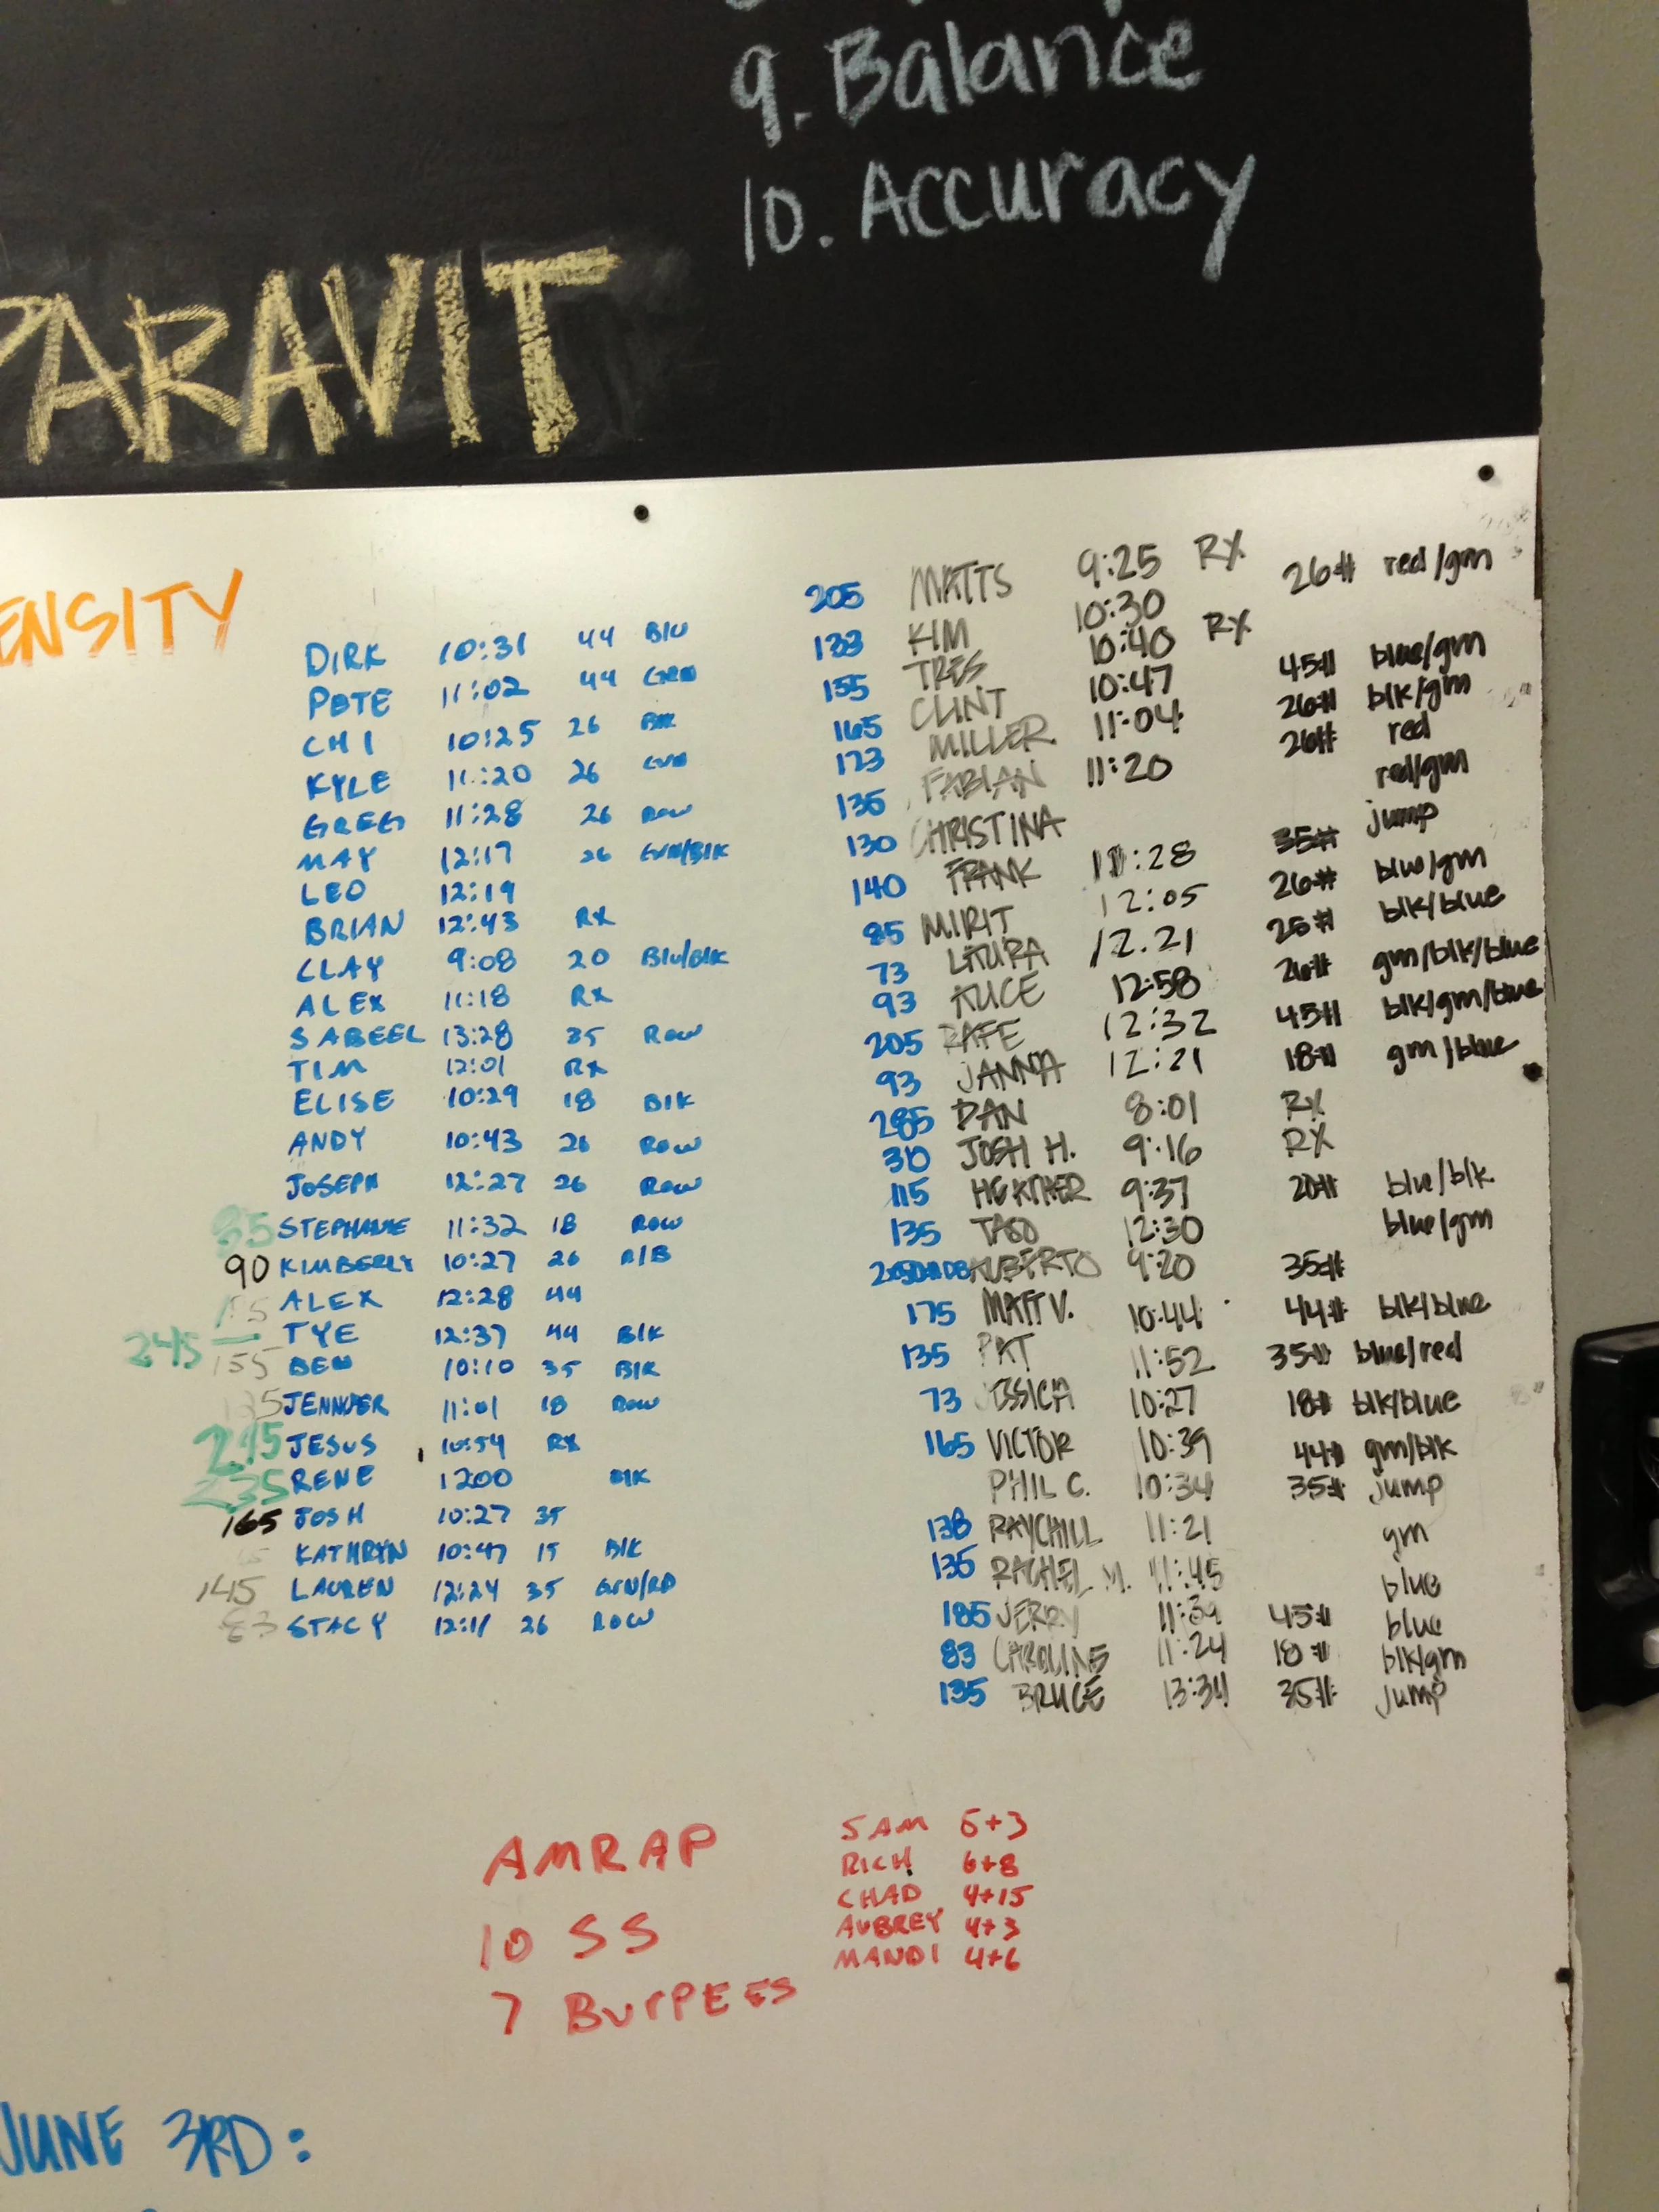 9. Balance
10. Accuracy
PARAVIT
ENSITY
DIRK 10:31 44 Blu
PETE 11:02 44 GRN
CHI 10:25 26 Blk
KYLE 11:20 26 GRN
GREG 11:28 26 Row
MAY 12:17 26 GRN/Blk
LEO 12:19
BRIAN 12:43 RX
CLAY 9:08 20 Blu/Blk
ALEX 11:18 Rx
SABEEL 13:28 35 Row
TIM 12:01 RX
ELISE 10:29 18 Blk
ANDY 10:43 26 Row
JOSEPH 12:27 26 Row
85 STEPHANIE 11:32 18 Row
90 KIMBERLY 10:27 26 R/B
ALEX 12:28 44
245 TYE 12:37 44 Blk
155 BEN 10:10 35 Blk
JENNIFER 11:01 18 Row
215 JESUS 10:54 RX
235 RENE 1200 Blk
165 JOSH 10:27 35
KATHRYN 10:47 15 Blk
145 LAUREN 12:24 35 Grn/RD
83 STACY 12:11 26 Row
205 MATTS 9:25 RX 26# red/grn
133 KIM 10:30
155 TRES 10:40 RX 45# blue/grn
165 CLINT 10:47 26# blk/grn
173 MILLER 11:04 26# red
135 FABIAN 11:20 red/grn
130 CHRISTINA 35# jump
140 FRANK 11:28 26# blue/grn
85 MIRIT 12:05 25# blk/blue
73 LAURA 12.21 26# grn/blk/blue
93 ALICE 12:58 45# blk/grn/blue
205 RAFE 12:32 18# grn/blue
93 JANNA 12:21
285 DAN 8:01 RX
310 JOSH H. 9:16 RX
115 HEATHER 9:37 20# blue/blk
135 TASO 12:30 blue/grn
ALBERTO 9:20 35#
175 MATT V. 10:44 44# blk/blue
135 PAT 11:52 35# blue/red
73 JESSICA 10:27 18# blk/blue
165 VICTOR 10:39 44# grn/blk
PHIL C. 10:34 35# jump
138 RAYCHILL 11:21 grn
135 RACHEL M. 11:45 blue
185 JERRY 11:39 45# blue
83 CAROLINE 11:24 18# blk/grn
135 BRUCE 13:34 35# jump
AMRAP
10 SS
7 BurPEES
SAM 5+3
RICH 6+8
CHAD 4+15
AUBREY 4+3
MANDI 4+6
JUNE 3RD: